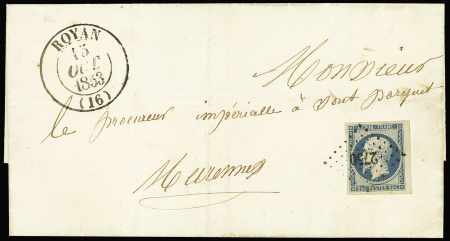 ROYAN
15
OCT
1853
(16)
Monsieur
le procureur impérialle à
Marennes
2730